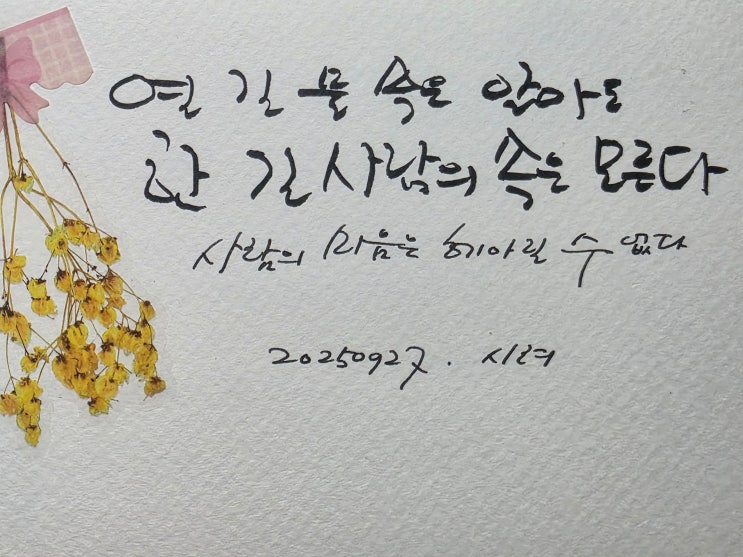 열 길 물 속은 알아도
한 길 사람의 속은 모른다
사람의 마음은 헤아릴 수 없다
20250927. 시려